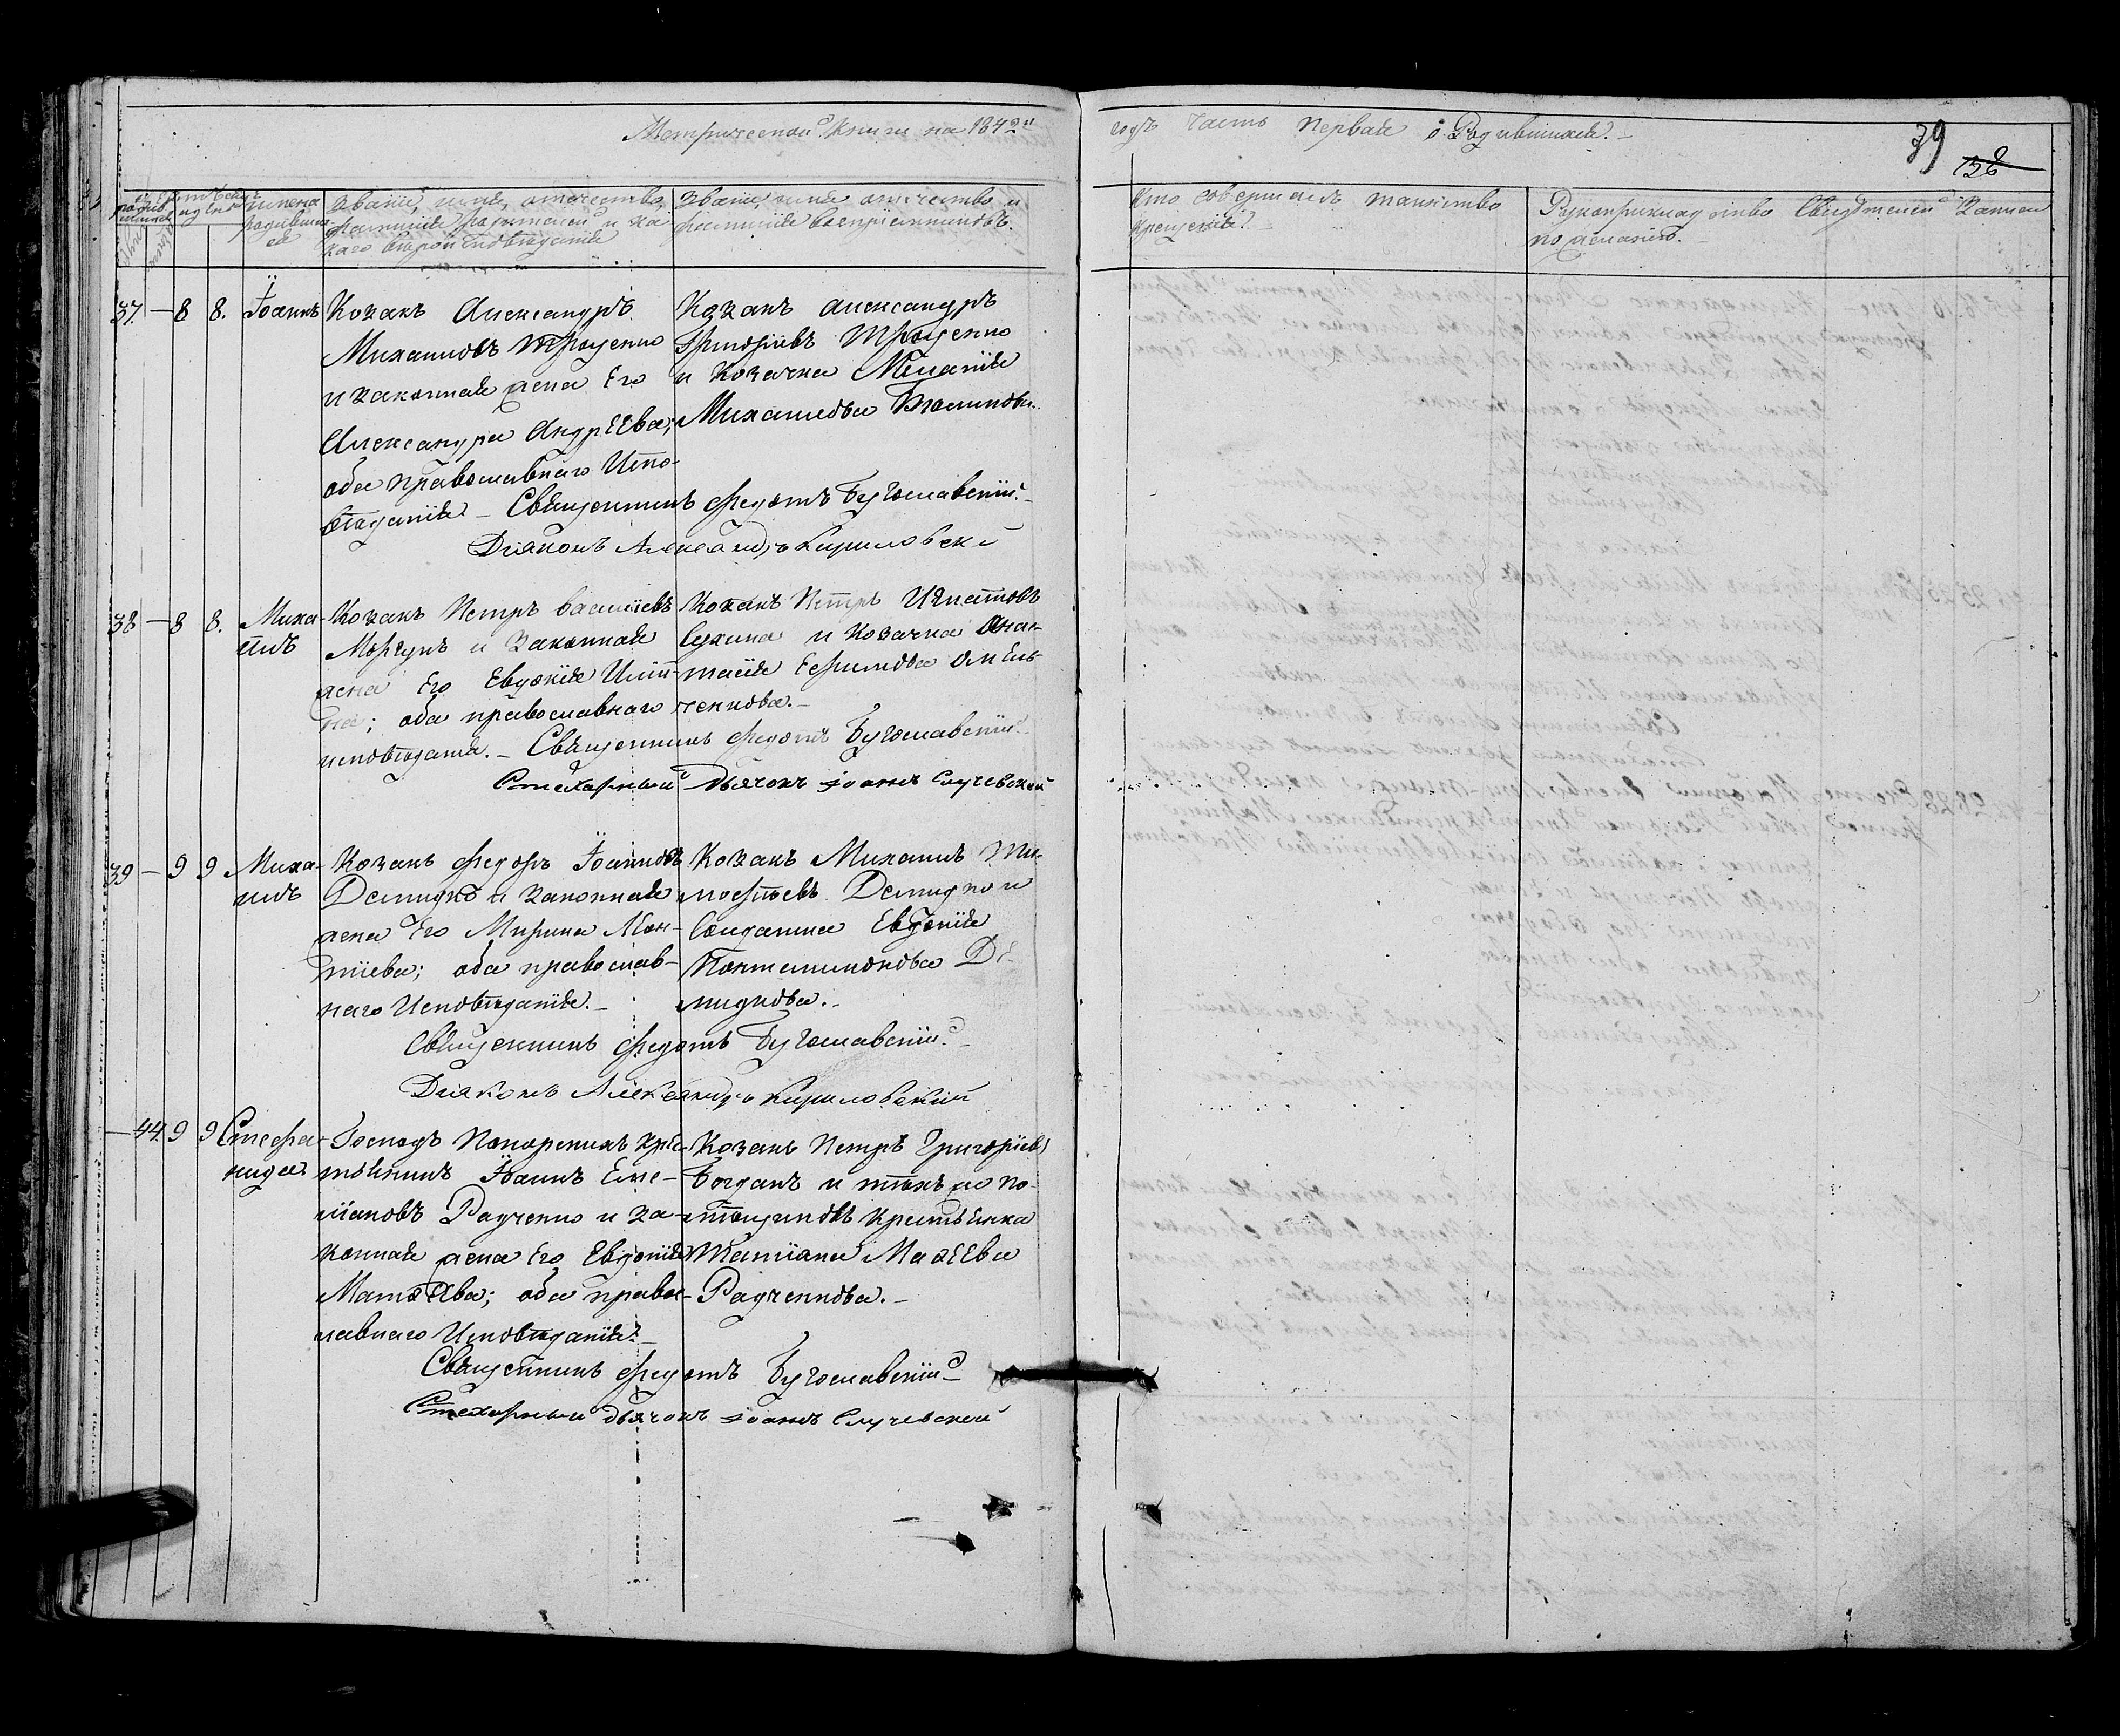 Метрической Книги на 1842й
годъ Часть Первая о Родившихся.
39
138
имена родивших-
ся
Званіе, имя, отчество,
фамилия родителей и ка
каго вѣроисповѣданія
Званіе, имя отчество и
фамилия воспріемниковъ.
Кто совершалъ таинство
крещенія.
Рукоприкладство Свидѣтелей Записи
по желанію.
37. — 8 8. Іоаннъ
Козакъ Александръ
Михаиловъ Троценко
и законная жена Его
Александра Андреева;
оба православнаго Испо-
вѣданія –
Козакъ Александръ
Григоріевъ Троценко
и Козачка Меланія
Михаилова
Священникъ Федотъ Бугославскій.
Діяконъ Александръ Кириловскй
38 — 8 8. Миха-
илъ
Козакъ Петръ Василіевъ
Моргунъ и Законная
жена Его Евдокія
на; оба православнаго
исповѣданія. –
Козакъ Петръ Игнатовъ
Сухина и Козачка Анас-
тасія Ефимова Омель-
ченкова. –
Священникъ Федотъ Бугославскій
Стихарный Дьячокъ Іоаннъ Случевской
39 — 9 9 Миха-
илъ
Козакъ Федоръ Іоанновъ
Демидко и Законная
жена Его Мирина Мок-
іева; оба православ-
наго Исповѣданія. –
Козакъ Михаилъ Ти-
мофѣевъ Демидко и
Солдатка Евдокія
Пантелимонова Де-
мидкова. –
Священникъ Федотъ Бугославскій
Діяконъ Александръ Кириловскій
— 44. 9 9 Стефа-
нида
Господъ Понорскихъ крес-
тянинъ Іоаннъ Еме-
ліановъ Радченко и за-
конная жена Его Евдокія
Матѳѣева; оба правос-
лавнаго Исповѣданія. –
Козакъ Петръ Григоріевъ
Богданъ и тѣхъ же по-
мѣщиковъ Крестьянка
Татіана Маѳеева
Радченкова. –
Священникъ Федотъ Бугославскій
Стихарный Дьячокъ Іоаннъ Случевской